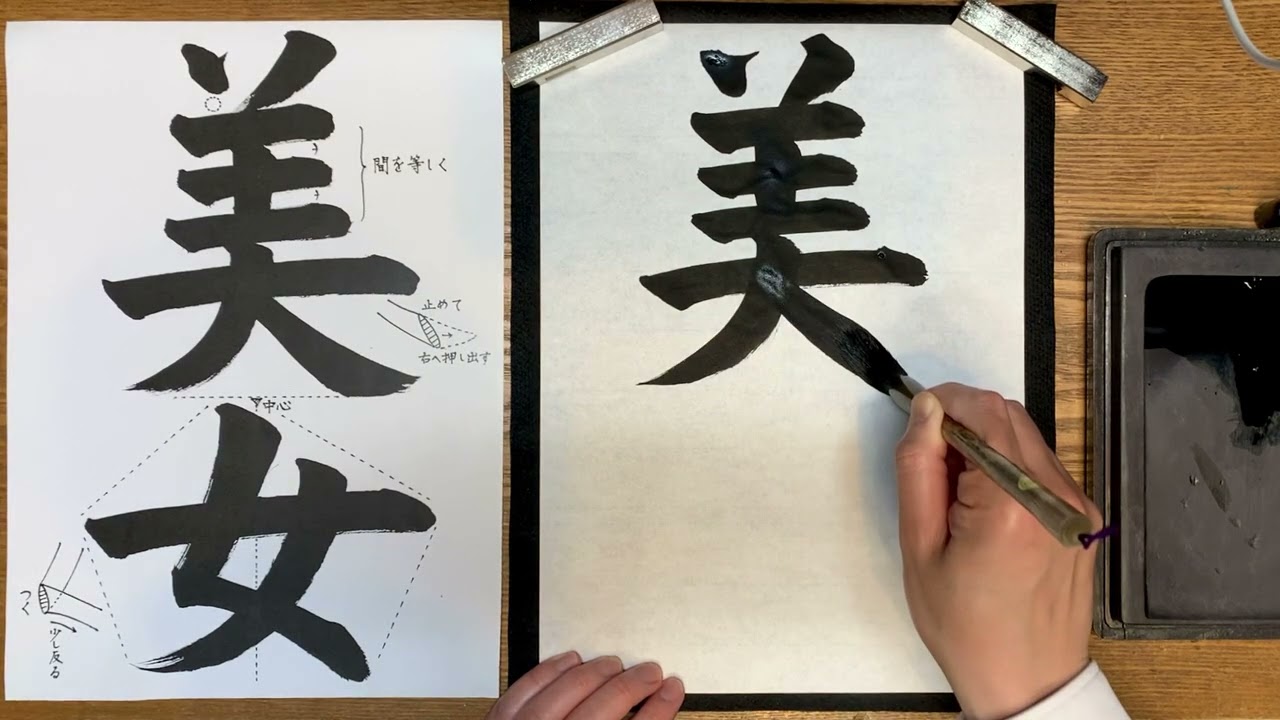 美
間を等しく
止めて
右へ押し出す
中心
女
つく
少し反る
美